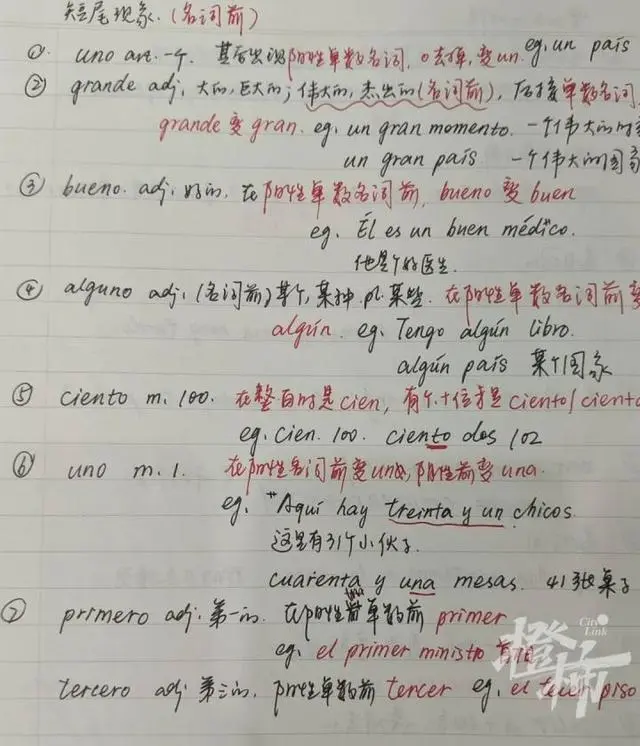 短尾现象.(名词前)
①. uno art. 一个. 其后出现阳性单数名词, o去掉, 变un. eg, un país
② grande adj, 大的, 巨大的; 伟大的, 杰出的(名词前), 后接单数名词,
grande 变 gran. eg, un gran momento. 一个伟大的时
un gran país 一个伟大的国家
③ bueno. adj, 好的, 在阳性单数名词前, bueno 变 buen
eg, Él es un buen médico.
他是个好医生.
④ alguno adj, (名词前)某个, 某种. pl. 某些. 在阳性单数名词前变
algún. eg, Tengo algún libro.
algún país 某个国家
⑤ ciento m. 100. 在整百时是cien, 有个.十位才是ciento/ciento
eg, cien. 100. ciento dos 102
⑥ uno m. 1. 在阳性名词前变un, 阴性前变una.
eg, "Aquí hay treinta y un chicos.
这里有31个小伙子.
cuarenta y una mesas. 41张桌子
⑦ primero adj. 第一的. 在阳性单数前 primer
eg, el primer ministro 首相
tercero adj 第三的, 阳性单数前 tercer eg, el tecer piso
橙柿
City Link